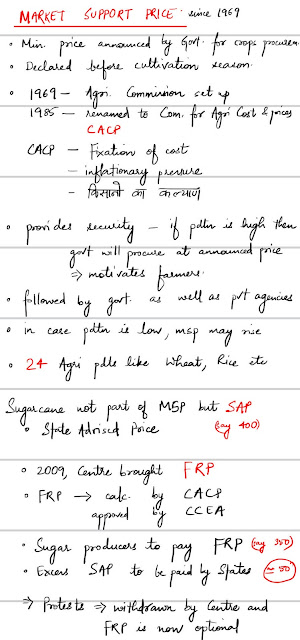 MARKET SUPPORT PRICE : since 1969
• Min. price announced by Govt. for crops procurem
• Declared before cultivation season.
• 1969 — Agri. Commission set up
1985 — renamed to Com. for Agri Cost & prices
CACP
CACP — Fixation of cost
— inflationary pressure
— किसानो का कल्याण
• provides security — if pdtn is high then
govt will procure at announced price
⇒ motivates farmers.
• followed by govt. as well as pvt agencies
• in case pdtn is low, msp may rise
• 24 Agri pdts like Wheat, Rice etc
Sugarcane not part of MSP but SAP
• State Advised Price (say 400)
• 2009, Centre brought FRP
• FRP → calc. by CACP
approved by CCEA
• Sugar producers to pay FRP (say 350)
• Excess SAP to be paid by States = 50
⇒ Protests ⇒ withdrawn by Centre and
FRP is now optional